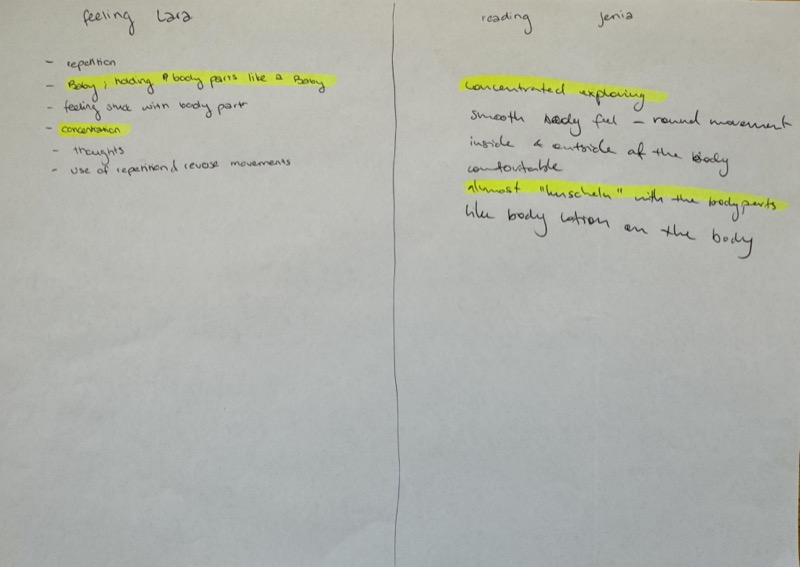 feeling Lara
- repetition
- Baby, holding body parts like a Baby
- feeling stuck with body part
- concentration
- thoughts
- use of repetition & revose movements
reading Jenia
concentrated exploring
smooth body feel - round movement
inside & outside of the body
comfortable
almost "kuscheln" with the body parts
like body lotion on the body